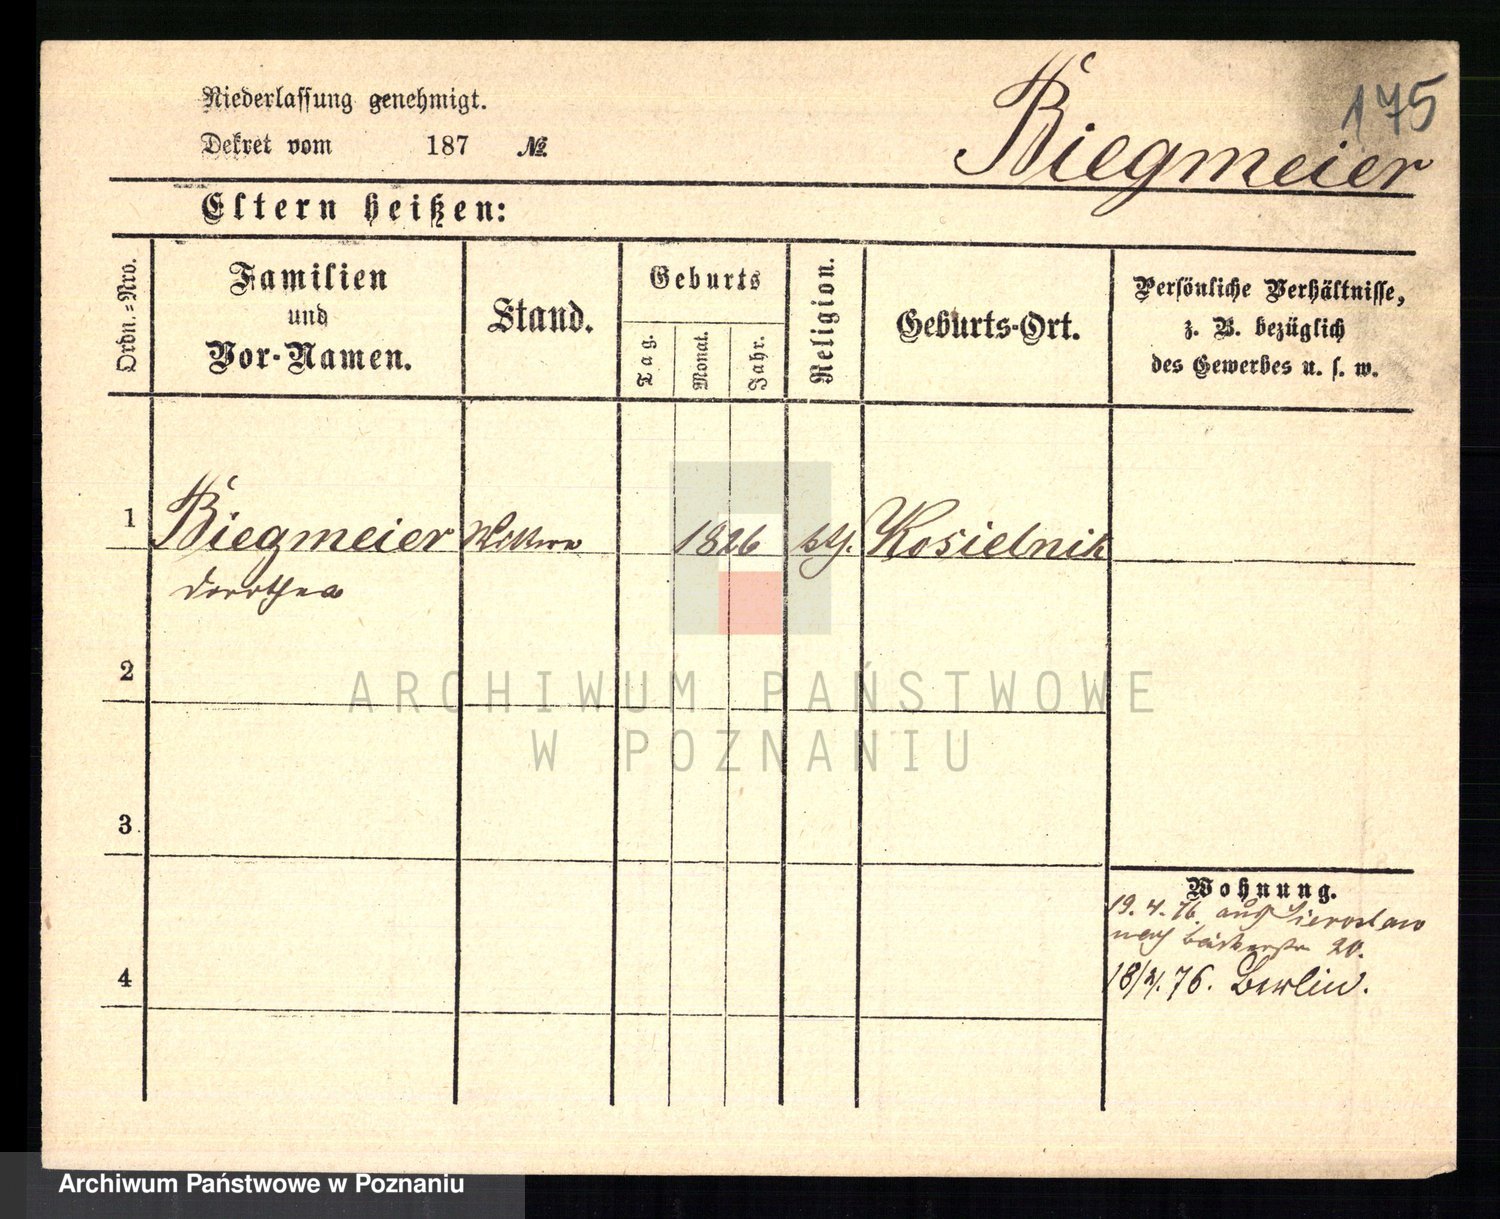 175
Biegmeier
Niederlassung genehmigt.
Dekret vom 187 №
Eltern heißen:
Ordn.=Nro.
Familien
und
Vor-Namen.
Stand.
Geburts
Tag.
Monat.
Jahr.
Religion.
Geburts-Ort.
Persönliche Verhältnisse,
z. B. bezüglich
des Gewerbes u. s. w.
1 Biegmeier 1826
Dorothea
2
3
4
Wohnung.
19.4.76. aus
nach 20.
18/4.76. Berlin.
ARCHIWUM PAŃSTWOWE
W POZNANIU
Archiwum Państwowe w Poznaniu